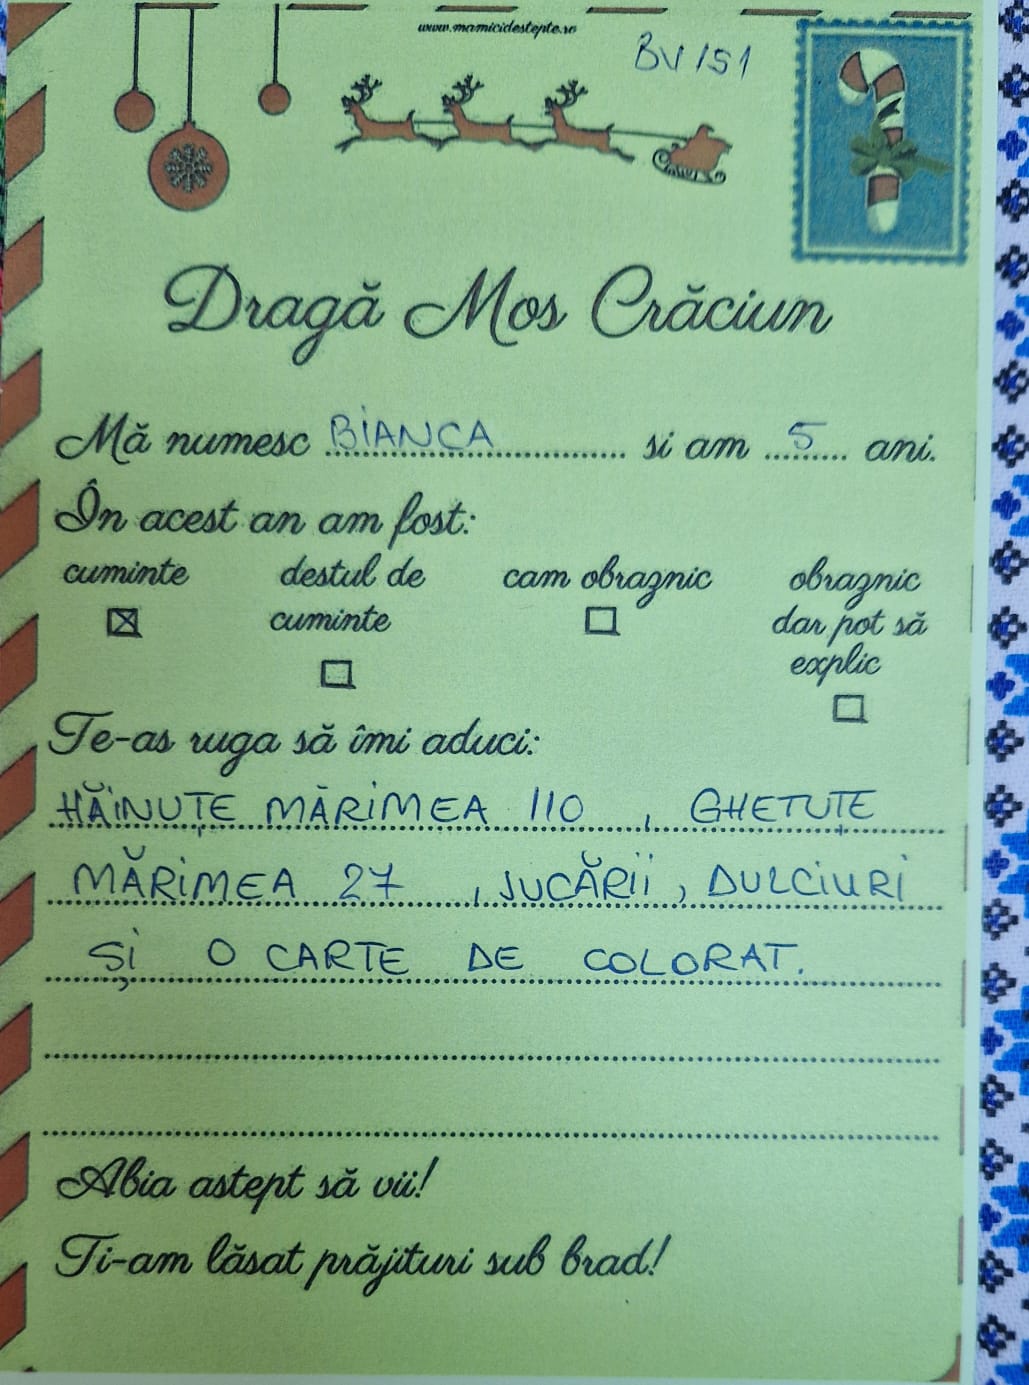 www.mamicidestepte.ro
BV151
Dragă Mos Crăciun
Mă numesc BIANCA si am 5 ani.
În acest an am fost:
cuminte destul de cuminte cam obraznic obraznic dar pot să explic
Te-as ruga să îmi aduci:
HĂINUȚE MĂRIMEA 110, GHETUȚE
MĂRIMEA 27, JUCĂRII, DULCIURI
ȘI O CARTE DE COLORAT.
Abia astept să vii!
Ti-am lăsat prăjituri sub brad!